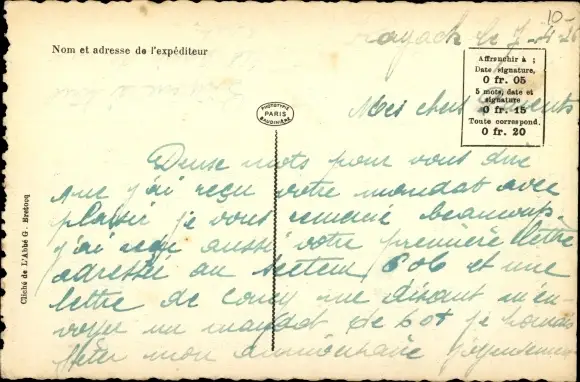 10-
Rayack le 7-4-26
Nom et adresse de l'expéditeur
Affranchir à :
Date signature,
0 fr. 05
5 mots, date et
signature
0 fr. 15
Toute correspond.
0 fr. 20
Mes chers Parents
PHOTOTYPIE
PARIS
BAUDINIÈRE
Deuse mots pour vous dire
que j'ai reçu votre mandat avec
plaisir je vous remercie beaucoup.
j'ai reçu aussi votre première lettre
adressée au secteur 606 et une
lettre de me disant m'en-
voyer un mandat de 60f je
fêter mon anniversaire
Cliché de L'Abbé G. Bretocq